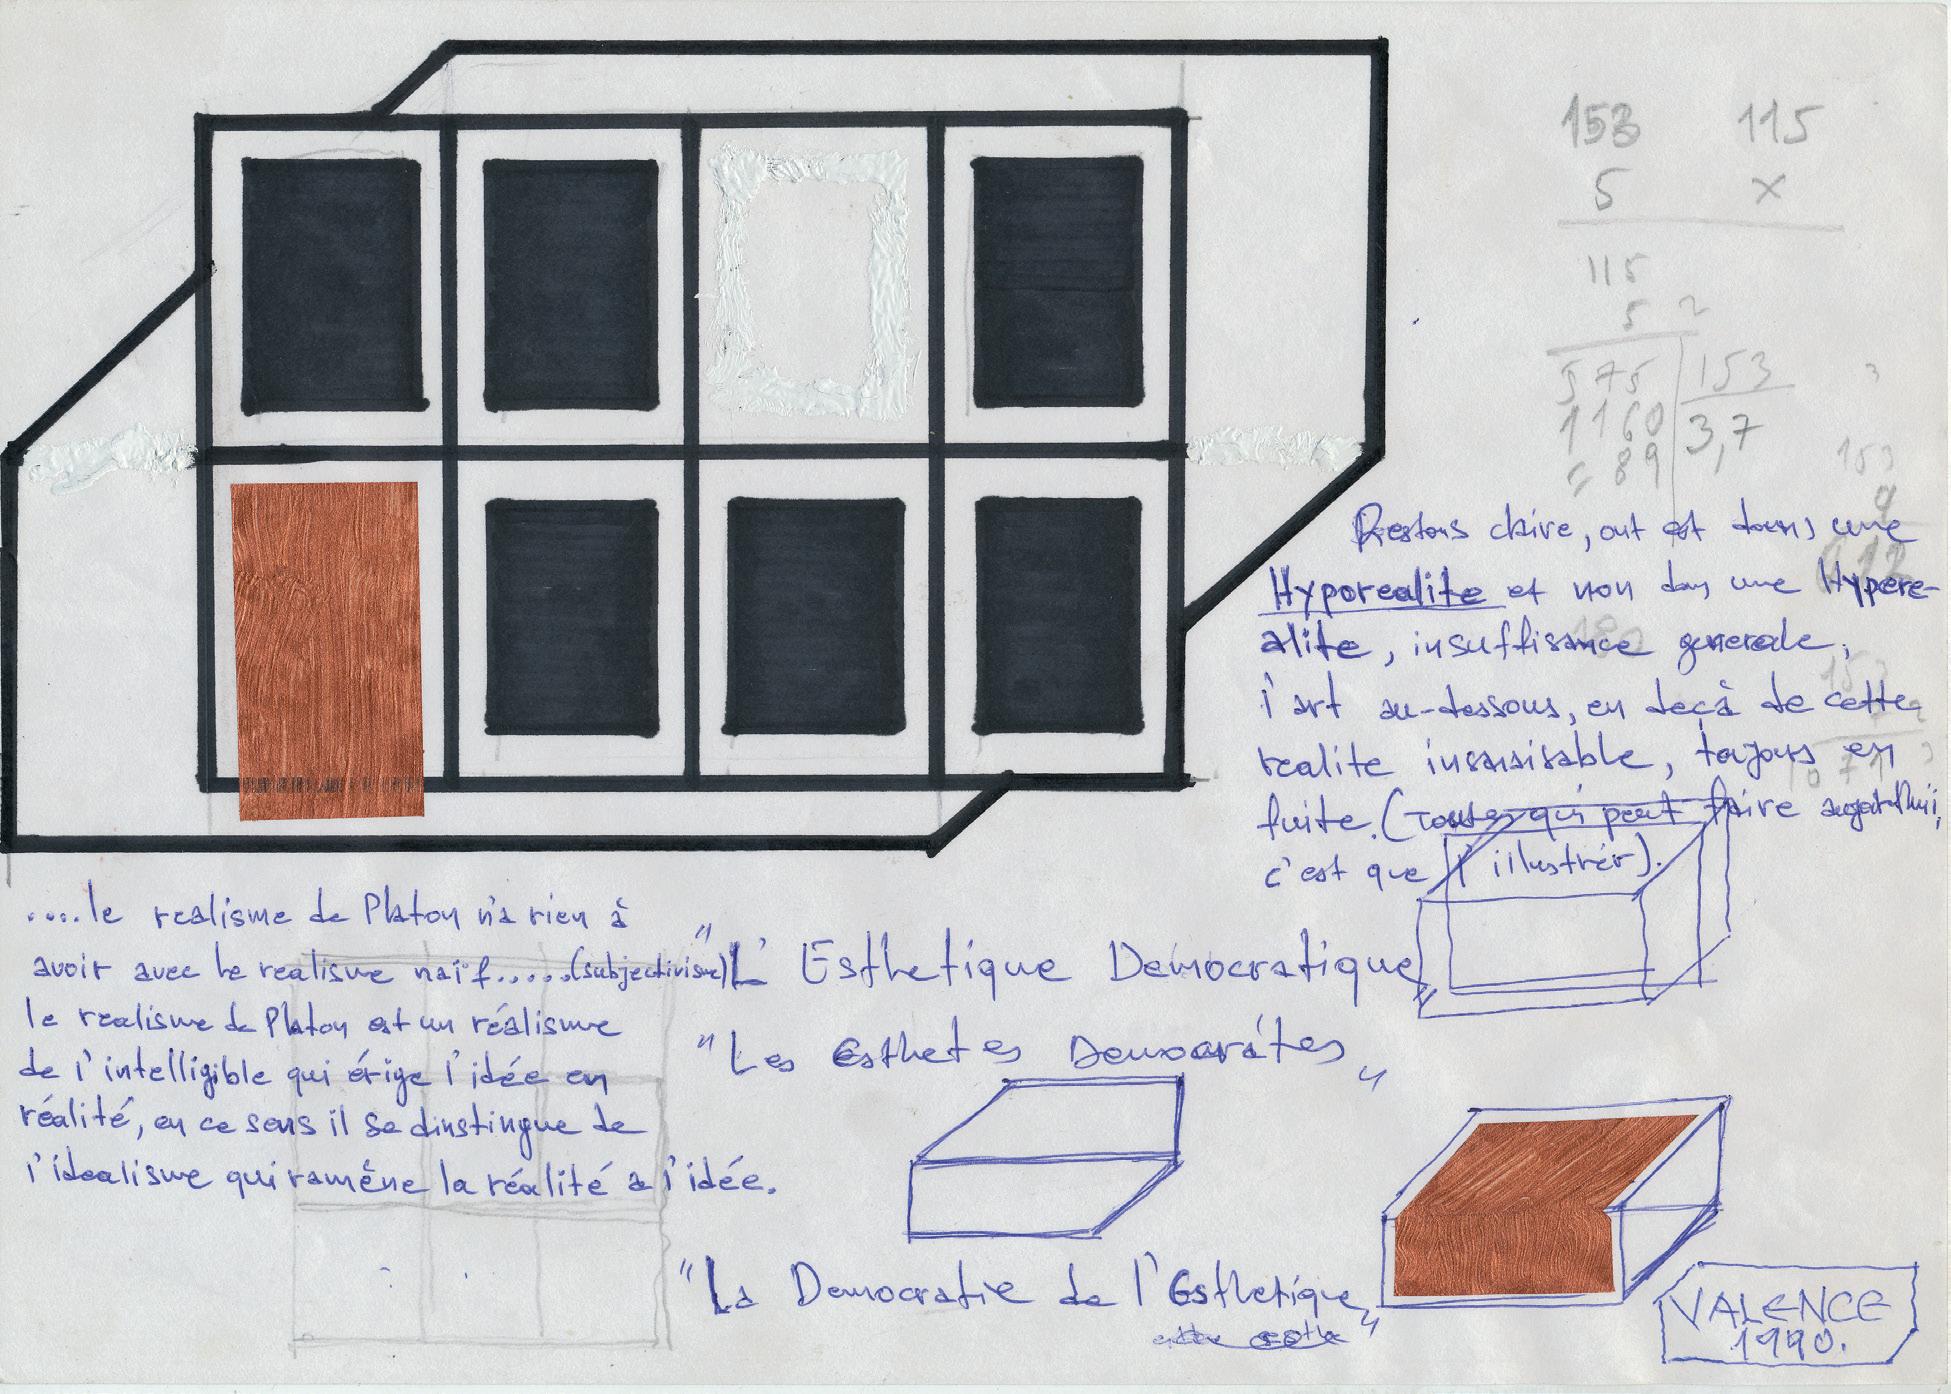 153 115
5 x
115
5 2
575 153
1160 3,7
= 89
153
9
Restons claire, out est dans une
Hyporealite et non dans une Hypere-
alite, insuffisance generale,
l'art au-dessous, en deçà de cette
realite insaisisable, toujours en
fuite. (Toutes qui peut faire
c'est que l'illustrer).
....le realisme de Platon n'a rien à
avoir avec le realisme naïf.....(subjectivisme)
le realisme de Platon est un réalisme
de l'intelligible qui érige l'idée en
réalité, en ce sens il se dinstingue de
l'idealisme qui ramène la réalité a l'idée.
"L'Esthetique Democratique"
"Les Esthetes Democrátes"
"La Democratie de l'Esthetique"
VALENCE
1990.